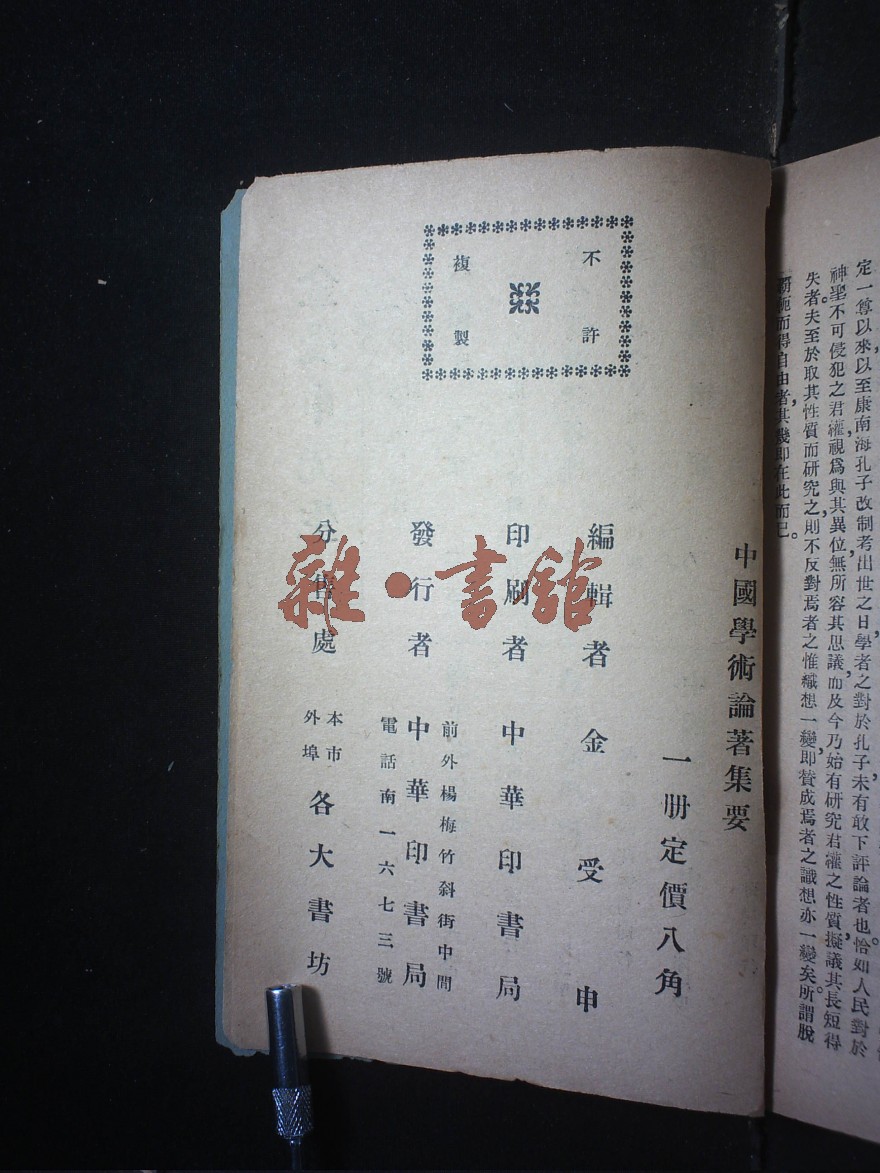 定一尊以來以至康南海孔子改制考出世之日，學者之對於孔子未有敢下評論者也。恰如人民對於
神聖不可侵犯之君權，視爲與其異位，無所容其思議，而及今乃始有研究君權之性質，擬議其長短得
失者。夫至於取其性質而研究之，則不反對焉者之惟
想一變，即贊成焉者之識想亦一變矣。所謂脫
而得自由者，其幾即在此而已。
中國學術論著集要
一册定價八角
編輯者 金受申
印刷者 中華印書局
前外楊梅竹斜街中間
發行者 中華印書局
電話南一六七三號
分售處 本市外埠 各大書坊
不許
複製
雜·書館